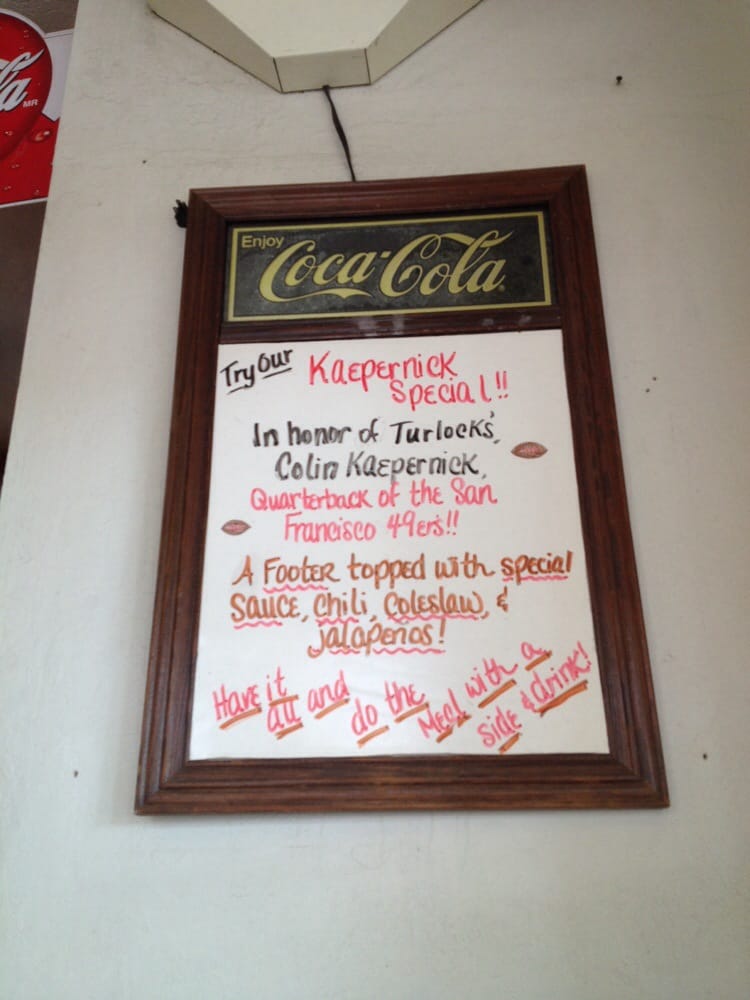 la
MR
Enjoy
Coca-Cola
Try Our Kaepernick
Special!!
In honor of Turlocks',
Colin Kaepernick,
Quarterback of the San
Francisco 49ers!!
A Footer topped with special
sauce, chili, coleslaw, &
jalapenos!
Have it all and do the Meal with a side & drink!